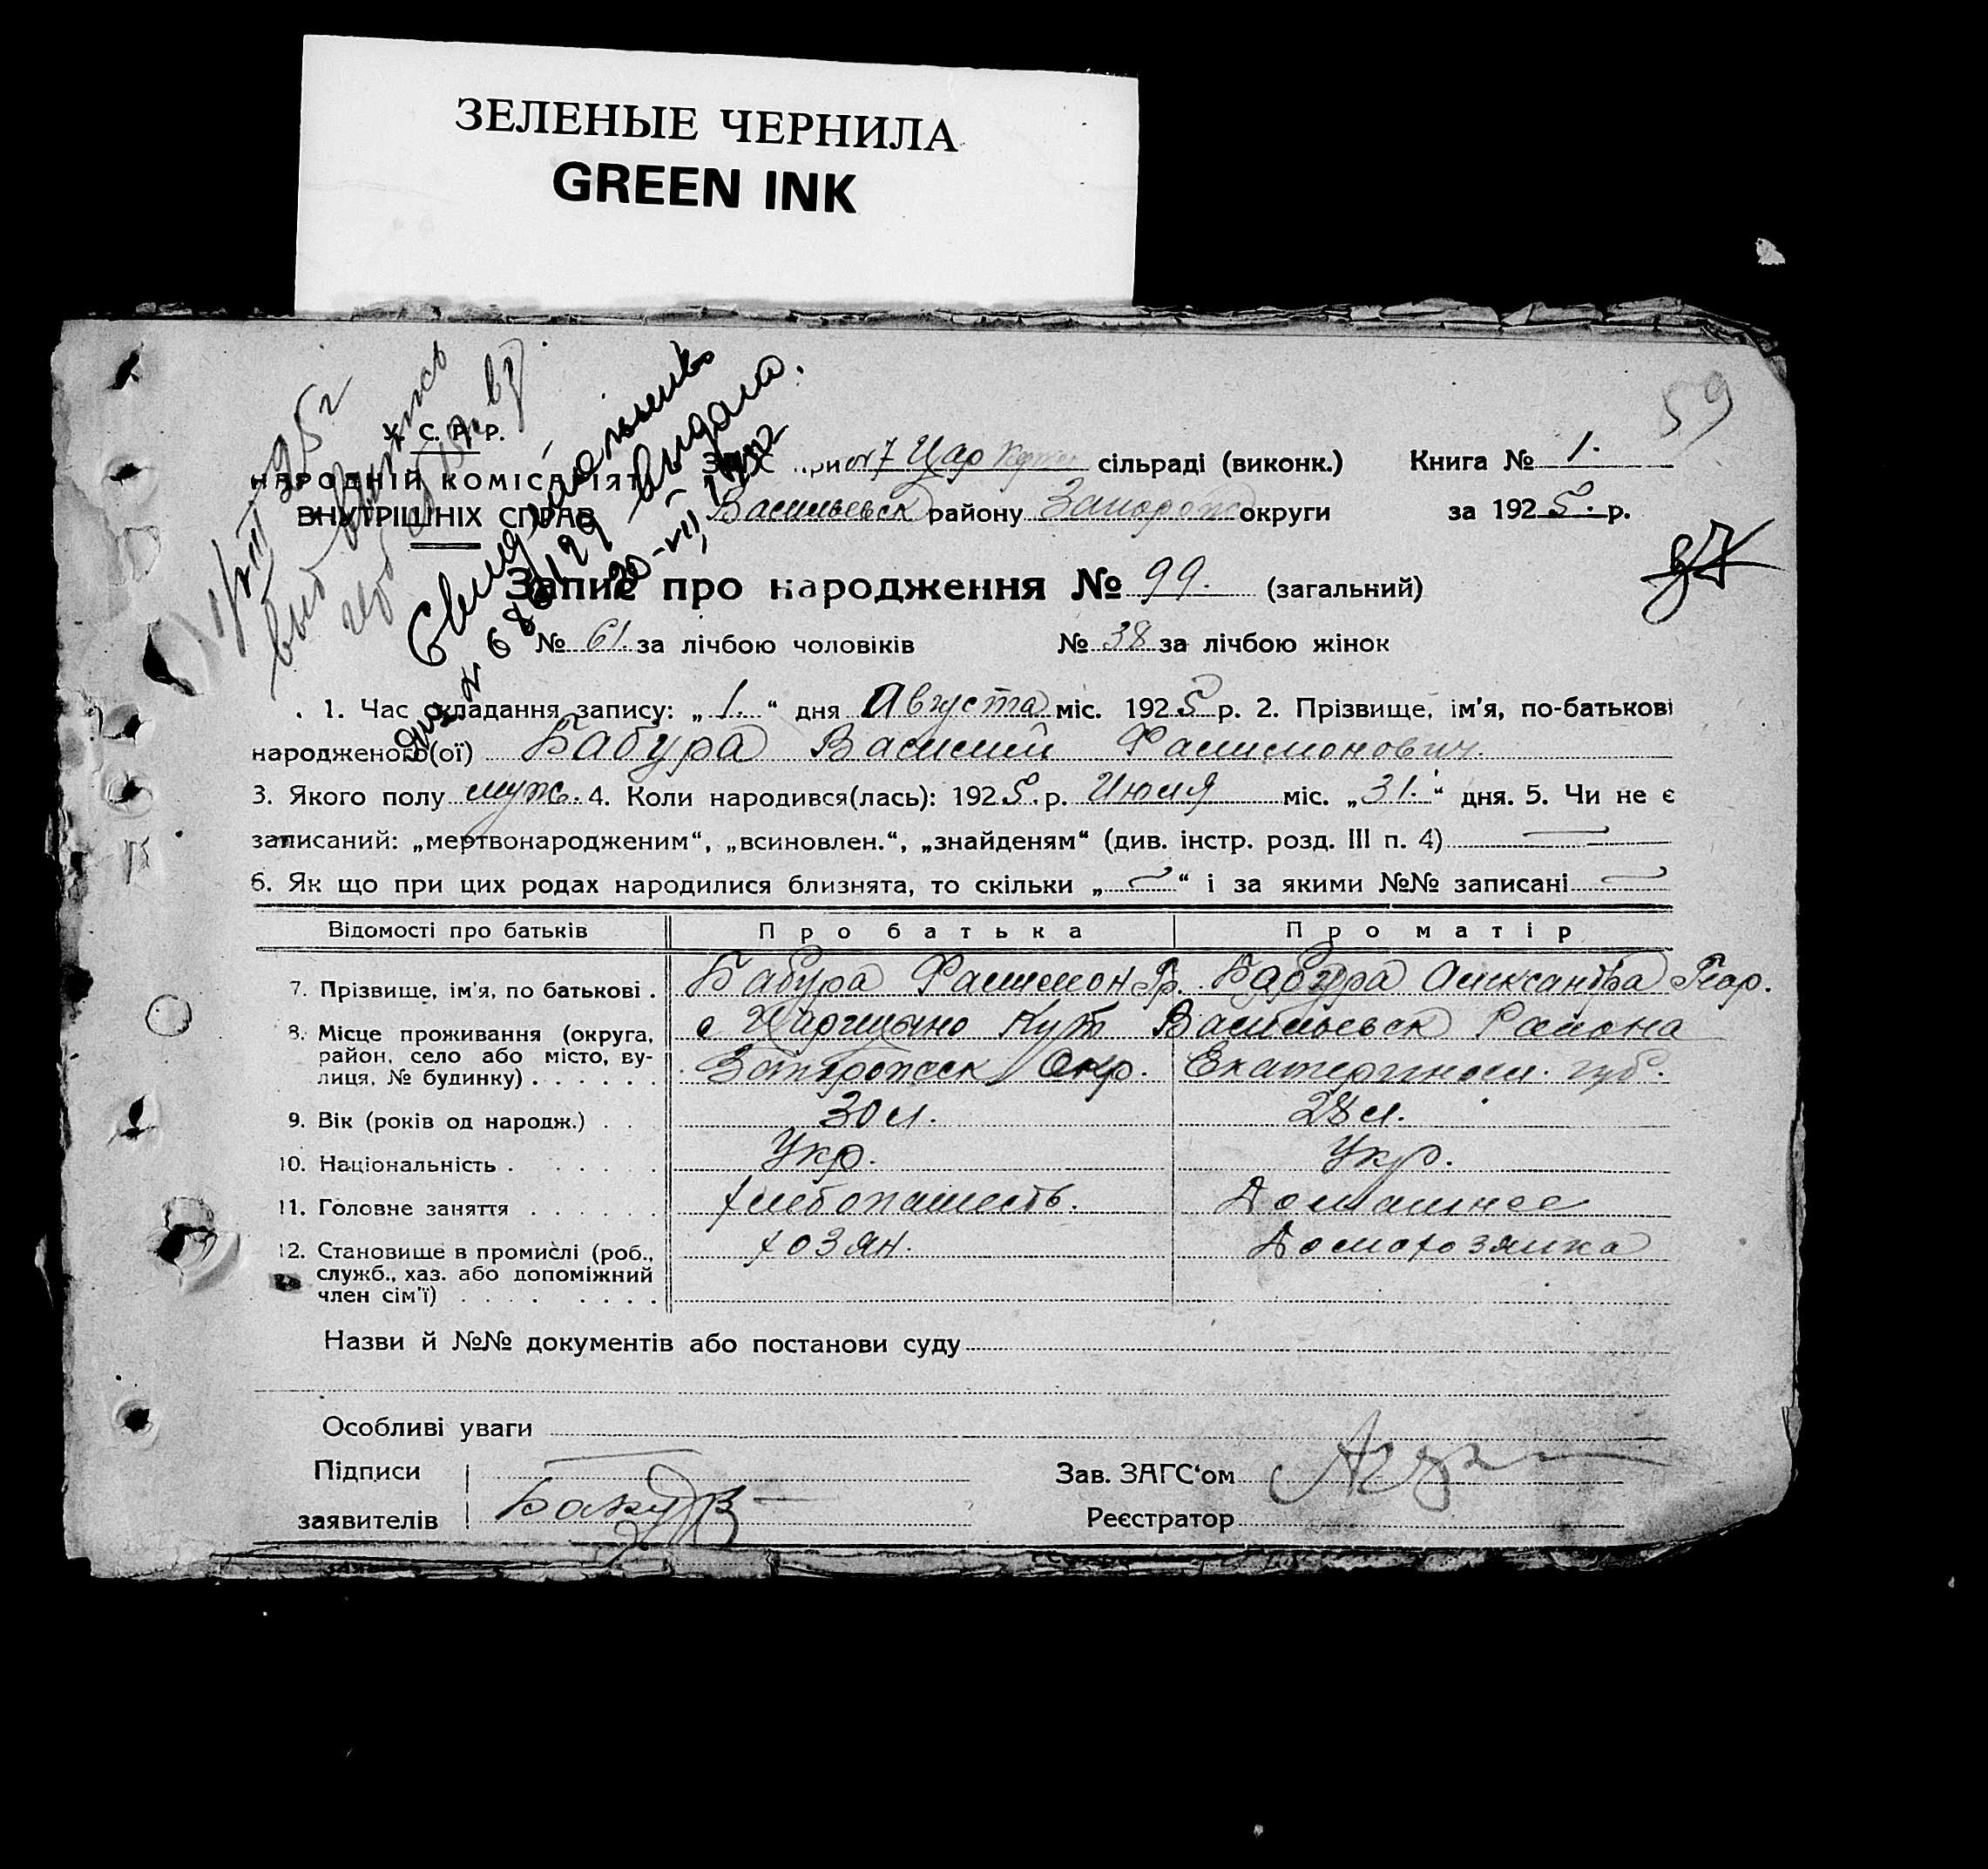 ЗЕЛЕНЫЕ ЧЕРНИЛА
GREEN INK
59
У. С. Р. Р.
НАРОДНІЙ КОМІСАРІЯТ
ВНУТРІШНІХ СПРАВ
при Цар сільраді (виконк.) Книга № 1.
Васильевск району Запорож округи за 1925. р.
Запис про народження № 99. (загальний)
№ 61. за лічбою чоловіків № 38 за лічбою жінок
1. Час складання запису: „1.“ дня Августа міс. 1925 р. 2. Прізвище, ім'я, по-батькові
народженого(ої) Бабура Василий Филимонович.
3. Якого полу муж. 4. Коли народився(лась): 1925. р. Июля міс. „31.“ дня. 5. Чи не є
записаний: „мертвонародженим“, „всиновлен.“, „знайденям“ (див. інстр. розд. III п. 4)
6. Як що при цих родах народилися близнята, то скільки „ “ і за якими №№ записані
Відомості про батьків Про батька Про матір
7. Прізвище, ім'я, по батькові . Бабура Филимон Гр. Бабура Александра
8. Місце проживання (округа, Кут Васильевск Района
район, село або місто, ву-
лиця, № будинку) . . . . . . Запорожск Окр. Екатериносл. губ.
9. Вік (років од народж.) . . 30 л. 28 л.
10. Національність . . . . . Укр. Укр.
11. Головне заняття . . . . . . Хлебопашеств. Домашнее
12. Становище в промислі (роб., хозян. Домохозяйка
служб., хаз. або допоміжний
член сім'ї) . . . . . . . .
Назви й №№ документів або постанови суду
Особливі уваги
Підписи Зав. ЗАГС‘ом
заявителів Реєстратор